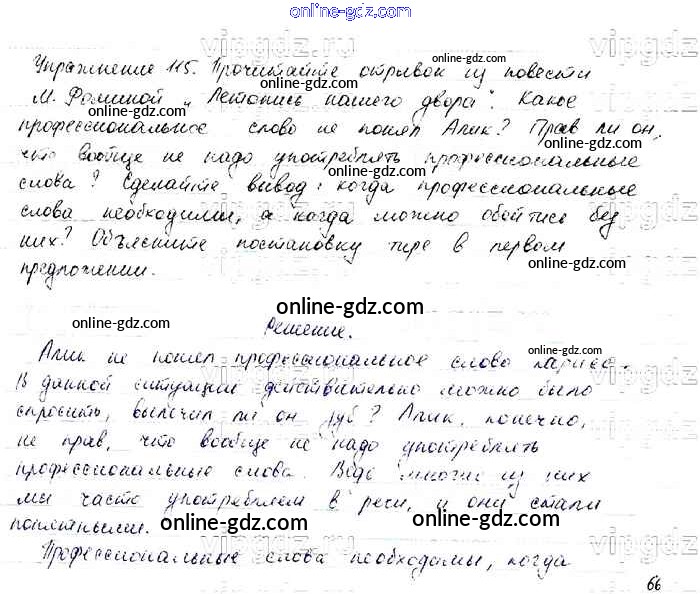 online-gdz.com
Упражнение 115. Прочитайте отрывок из повести
М. Фоминой „Летопись нашего двора". Какое
профессиональное слово не понял Алик? Прав ли он,
что вообще не надо употреблять профессиональные
слова? Сделайте вывод: когда профессиональные
слова необходимы, а когда можно обойтись без
них? Объясните постановку тире в первом
предложении.
Решение.
Алик не понял профессиональное слово кариес.
В данной ситуации действительно можно было
спросить, вылечил ли он зуб? Алик, конечно,
не прав, что вообще не надо употреблять
профессиональные слова. Ведь многие из них
мы часто употребляем в речи, и они стали
понятными.
Профессиональные слова необходимы, когда
66